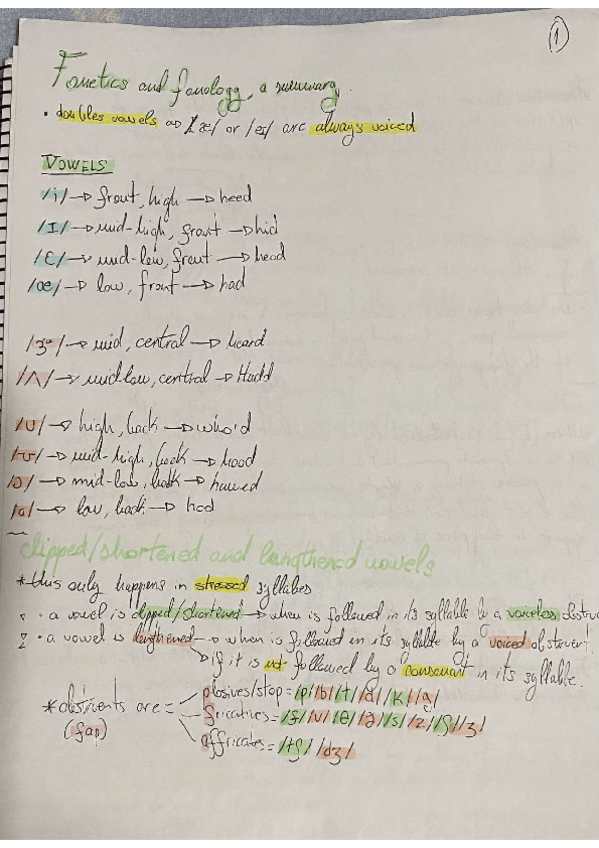 1
Fonetics and fonology, a summary.
• doubles vowels as /æ/ or /eɪ/ are always voiced
VOWELS
/i/ → front, high → heed
/I/ → mid-high, front → hid
/Ɛ/ → mid-low, front → head
/æ/ → low, front → had
/ɝ/ → mid, central → heard
/Λ/ → mid low, central → Hudd
/U/ → high, back → who'd
/ʊ/ → mid-high, back → hood
/ɔ/ → mid-low, back → hawed
/a/ → low, back → hod
clipped/shortened and lengthened vowels
* this only happens in stressed syllabes
1 • a vowel is clipped/shortened → when is followed in its syllable by a voiceless obstru
2 • a vowel is lengthened → when is followed in its syllable by a voiced obstruent
→ if it is not followed by a consonant in its syllable.
plosives/stop = /p/b/t/d/k/g/
* obstruents are =
fricatives = /f/v/θ/ð/s/z/ʃ/ʒ/
(fap)
affricates = /tʃ/ /dʒ/